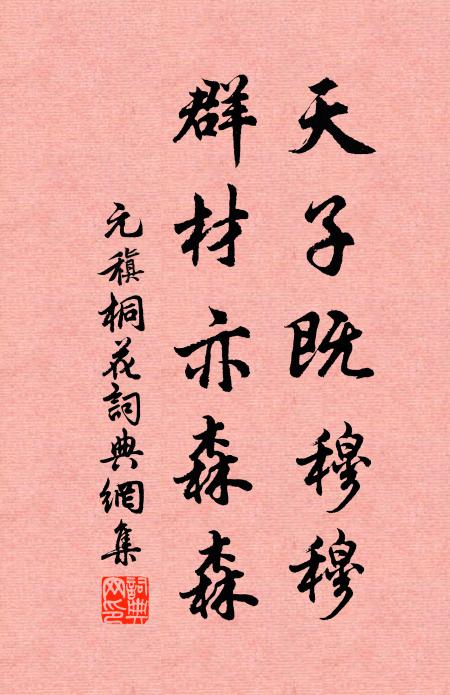 天子既穆穆
群材亦森森
元稹桐花詞典網集
詞典網印